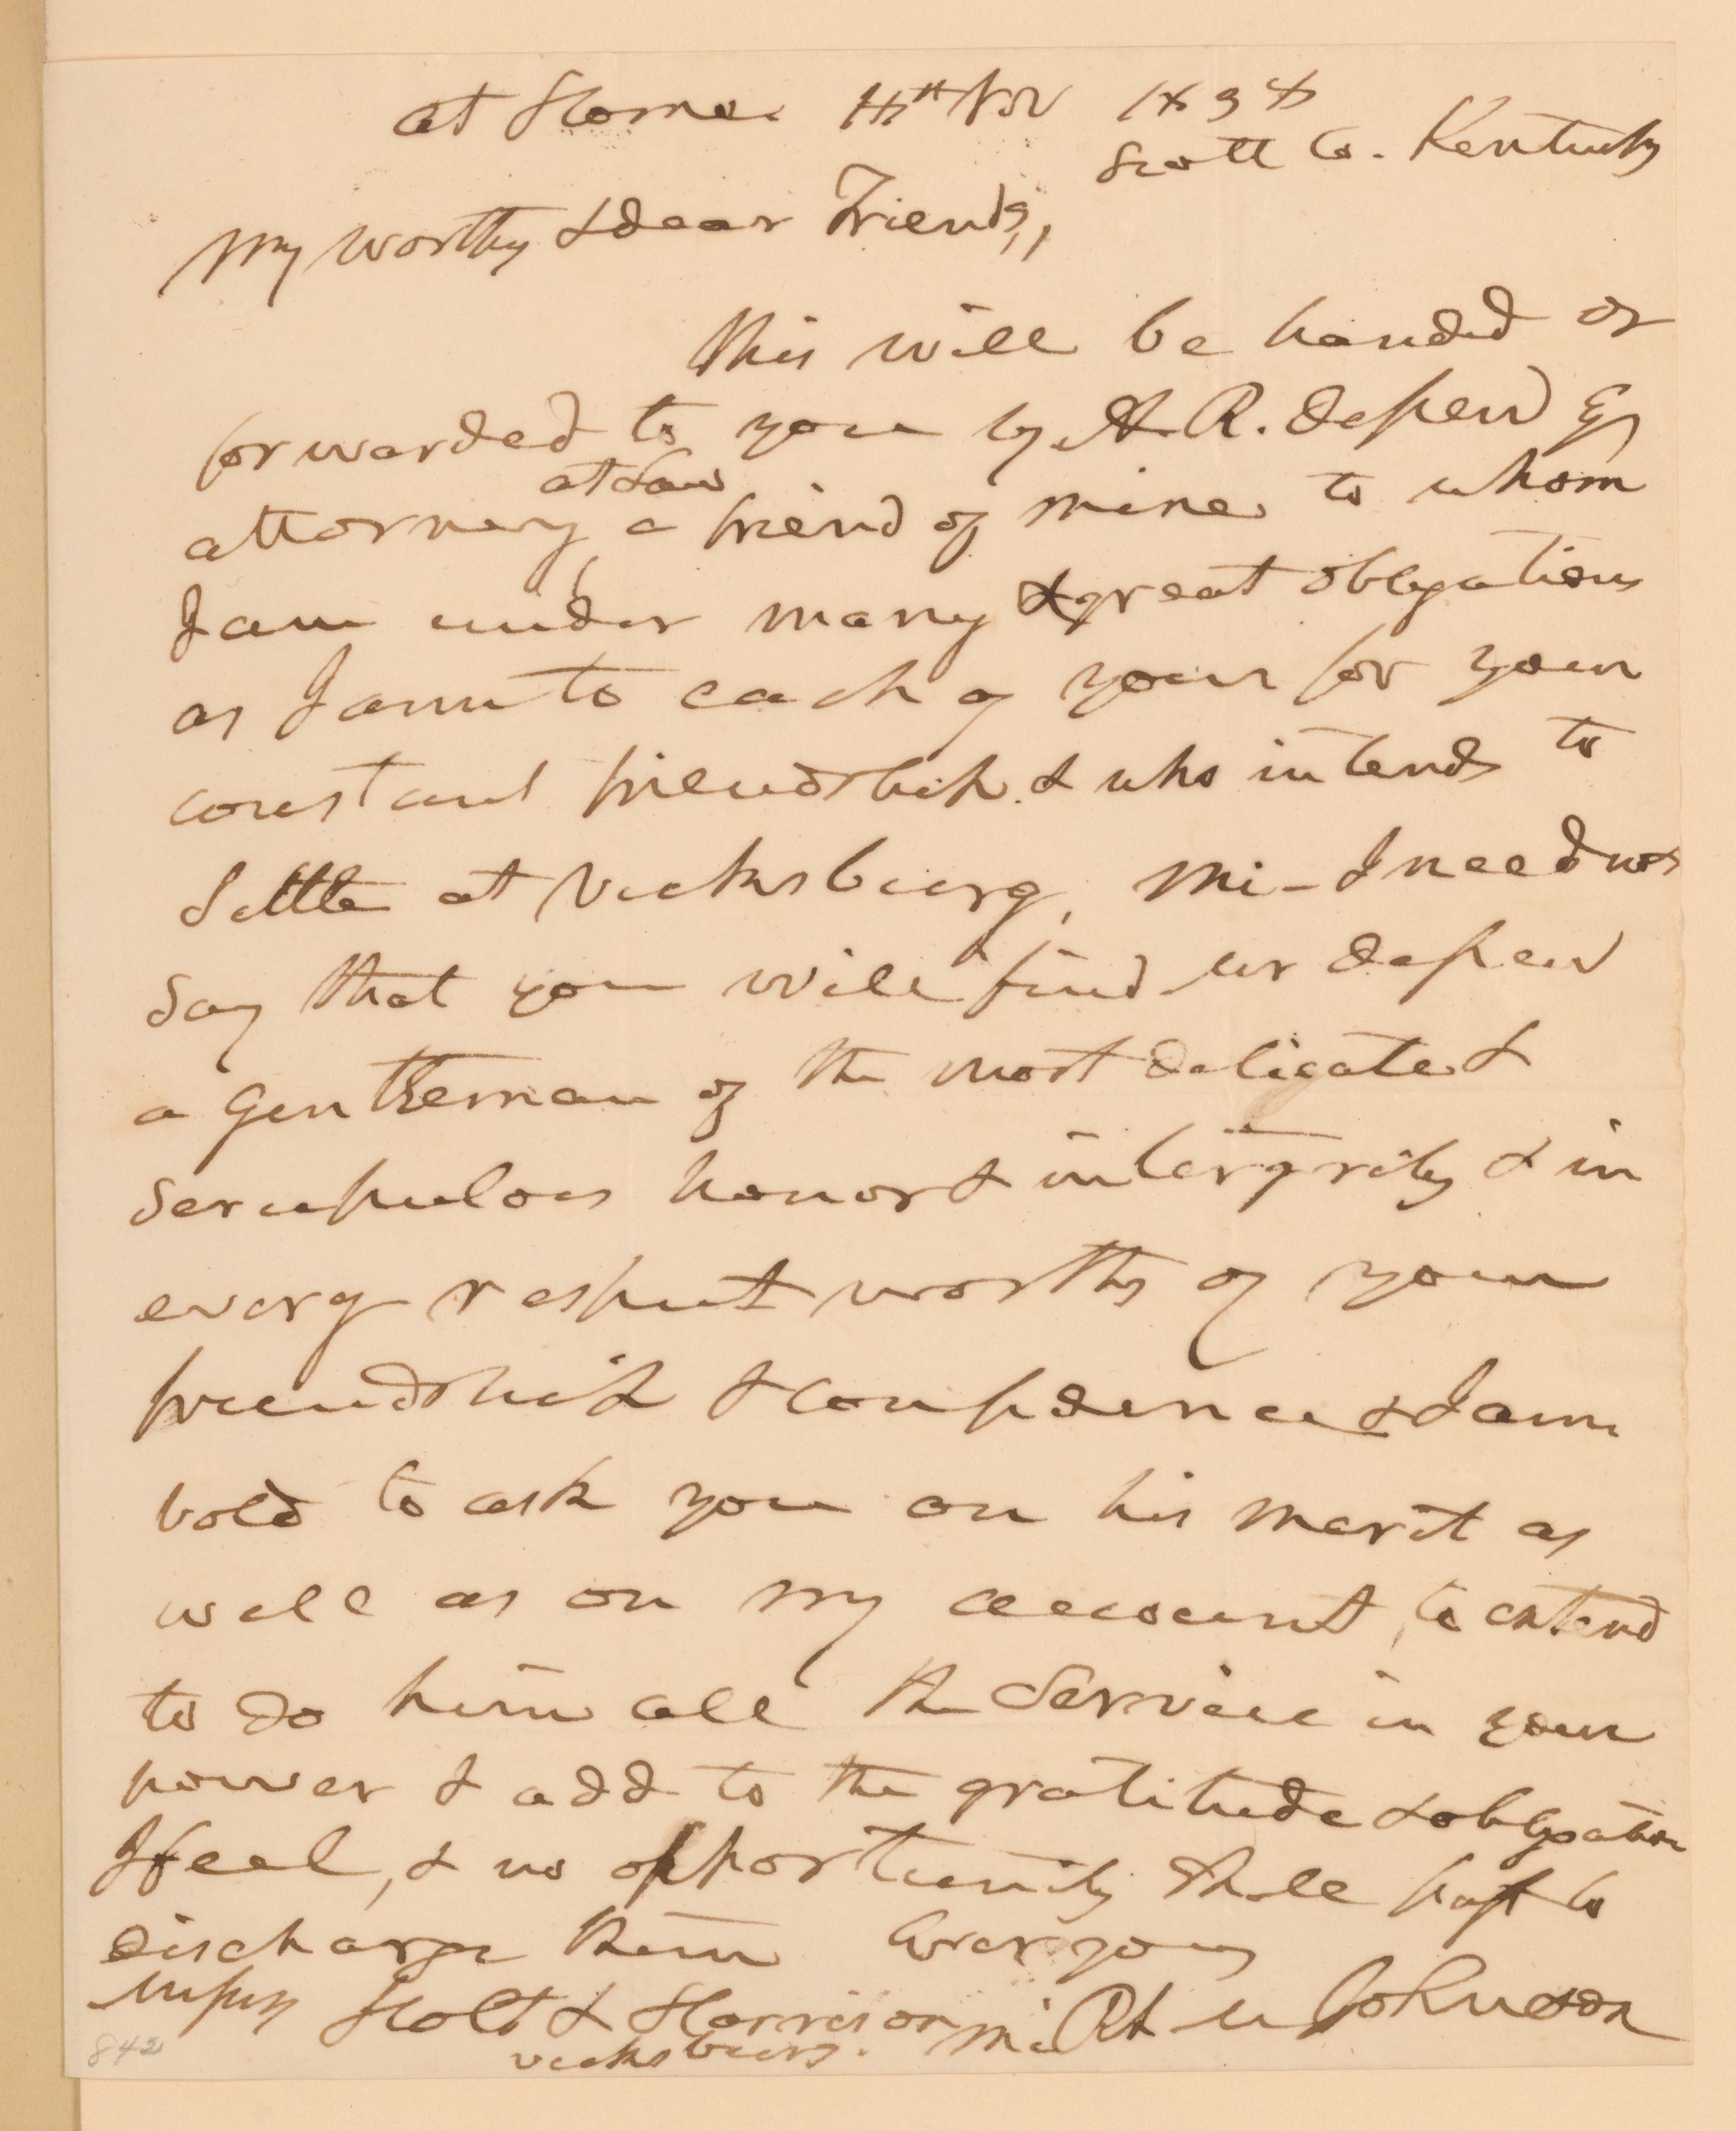 at Home. Nov 1838
Scott Co. Kentucky
My worthy & dear Friends,,
this will be handed or
forwarded to you by A. R. depew Esq
at Law
attorney, a friend of mine to whom
I am under many & great obligations
as I am to each of your for your
constant friendship. & who intends to
Settle at Vicksburg, Mi - I need not
Say that you will find mr depew
a Gentleman of the most deligate &
Scrupulous honor & intergrity & in
every respect worthy of your
friendship & confidence & I am
bold to ask you on his merit as
well as on my account, to extend
to do him all the Service in your
power & add to the gratitude & obligation
I feel, & no opportunity shall pass to
discharge them Ever yours
Messrs Holt & Harrison Rh M Johnson
Vicksburg. Mi
842